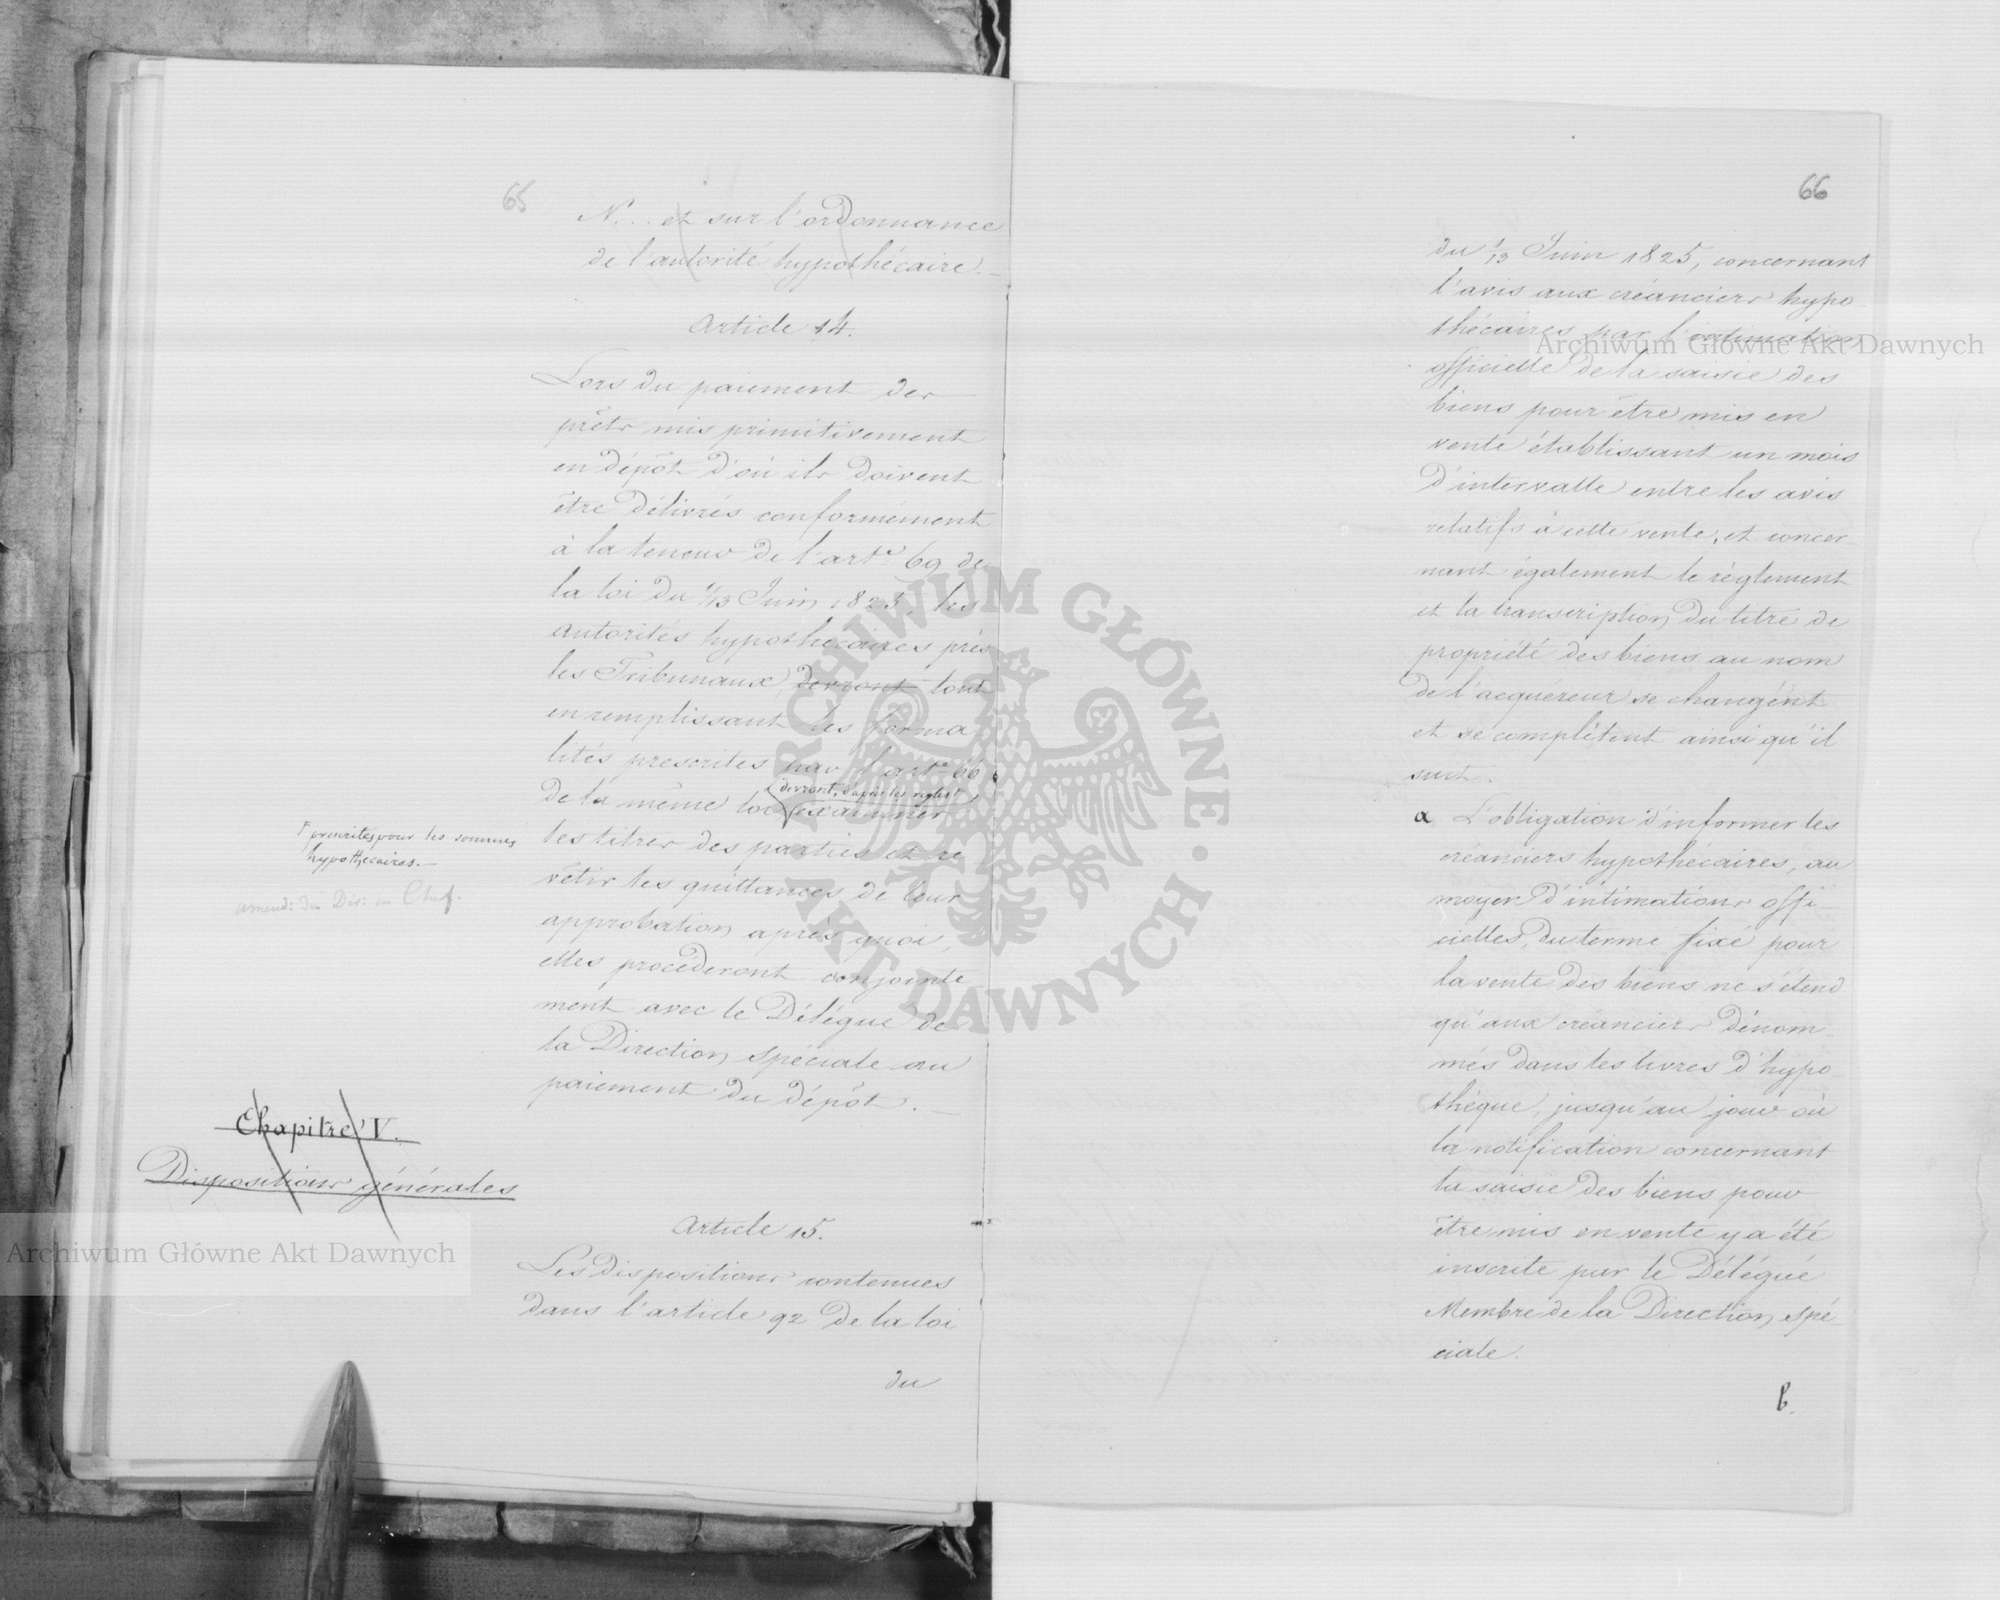 65
N... et sur l'ordonnance
de l'autorité hypothécaire.—
Article 14.
Lors du paiement des
prêts mis primitivement
en dépôt d'où ils doivent
être délivrés conformément
à la teneur de l'art.e 69 de
la loi du 1/13 Juin 1825, les
autorités hypothécaires près
les Tribunaux, devront tout
en remplissant les forma
lités prescrites par l'art.e 66
devront, d'après les règles
de la même loi examiner
les titres des parties et re
vêtir les quittances de leur
approbation après quoi,
elles procéderont conjointe
ment avec le Délégué de
la Direction spéciale au
paiement du dépôt.—
prescrites pour les sommes
hypothécaires.—
amend: du Dir: en Chef.
Chapitre V.
Dispositions générales
Article 15.
Les dispositions contenues
dans l'article 92 de la loi
du
66
du 1/13 Juin 1825, concernant
l'avis aux créanciers hypo
thécaires par l'intimation
officielle de la saisie des
biens pour être mis en
vente établissant un mois
d'intervalle entre les avis
relatifs à cette vente, et concer-
nant également le règlement
et la transcription du titre de
propriété des biens au nom
de l'acquéreur se changent
et se complètent ainsi qu'il
suit.
a L'obligation d'informer les
créanciers hypothécaires, au
moyen d'intimations offi-
cielles, du terme fixé pour
la vente des biens ne s'étend
qu'aux créanciers dénom-
més dans les livres d'hypo
thèque, jusqu'au jour où
la notification concernant
la saisie des biens pour
être mis en vente y a été
inscrite par le Délégué
Membre de la Direction spé
ciale.
b.
Archiwum Główne Akt Dawnych
Archiwum Główne Akt Dawnych
ARCHIWUM GŁÓWNE · AKT DAWNYCH